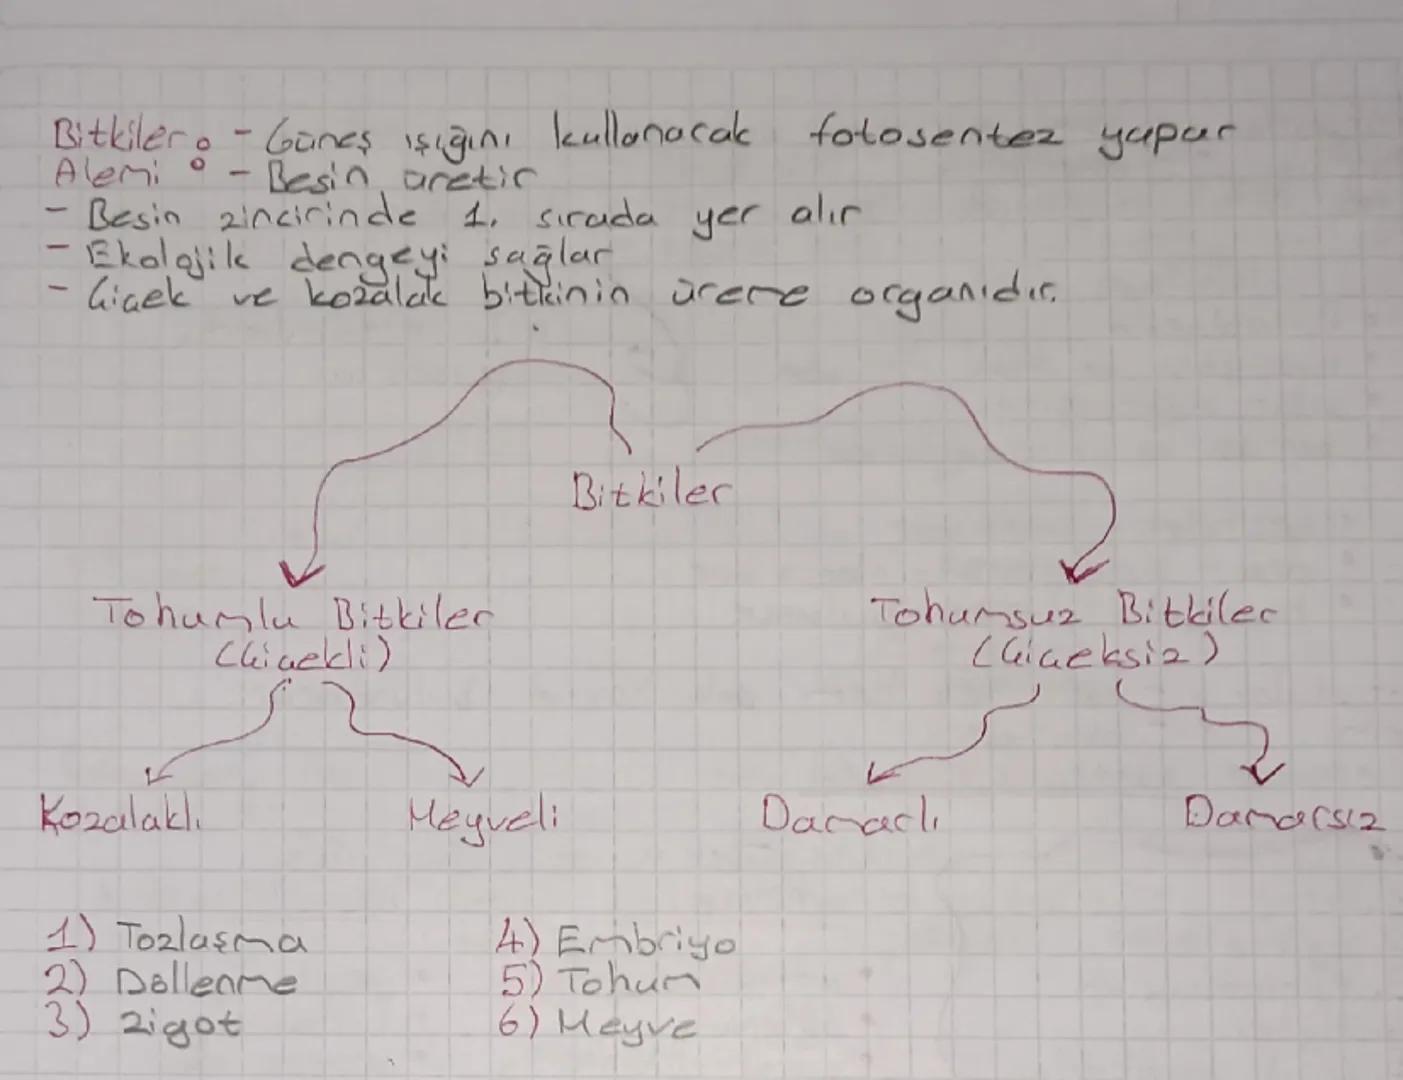 Bitkiler: - Güneş ışığını kullanarak fotosentez yapar
Alemi - Besin üretir
- Besin zincirinde 1. sırada yer alır
- Ekolojik dengeyi sağlar
- Çiçek ve kozalak bitkinin üreme organıdır.
Bitkiler
Tohumlu Bitkiler
(Çiçekli)
Tohumsuz Bitkiler
(Çiçeksiz)
Kozalaklı
Meyveli
Damarlı
Damarsız
1) Tozlaşma
2) Döllenme
3) Zigot
4) Embriyo
5) Tohum
6) Meyve